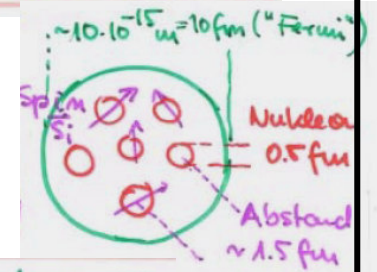 ~10·10⁻¹⁵m=10fm ("Fermi")
Spin
Si
Nukleon
0.5 fm
Abstand
~1.5 fm